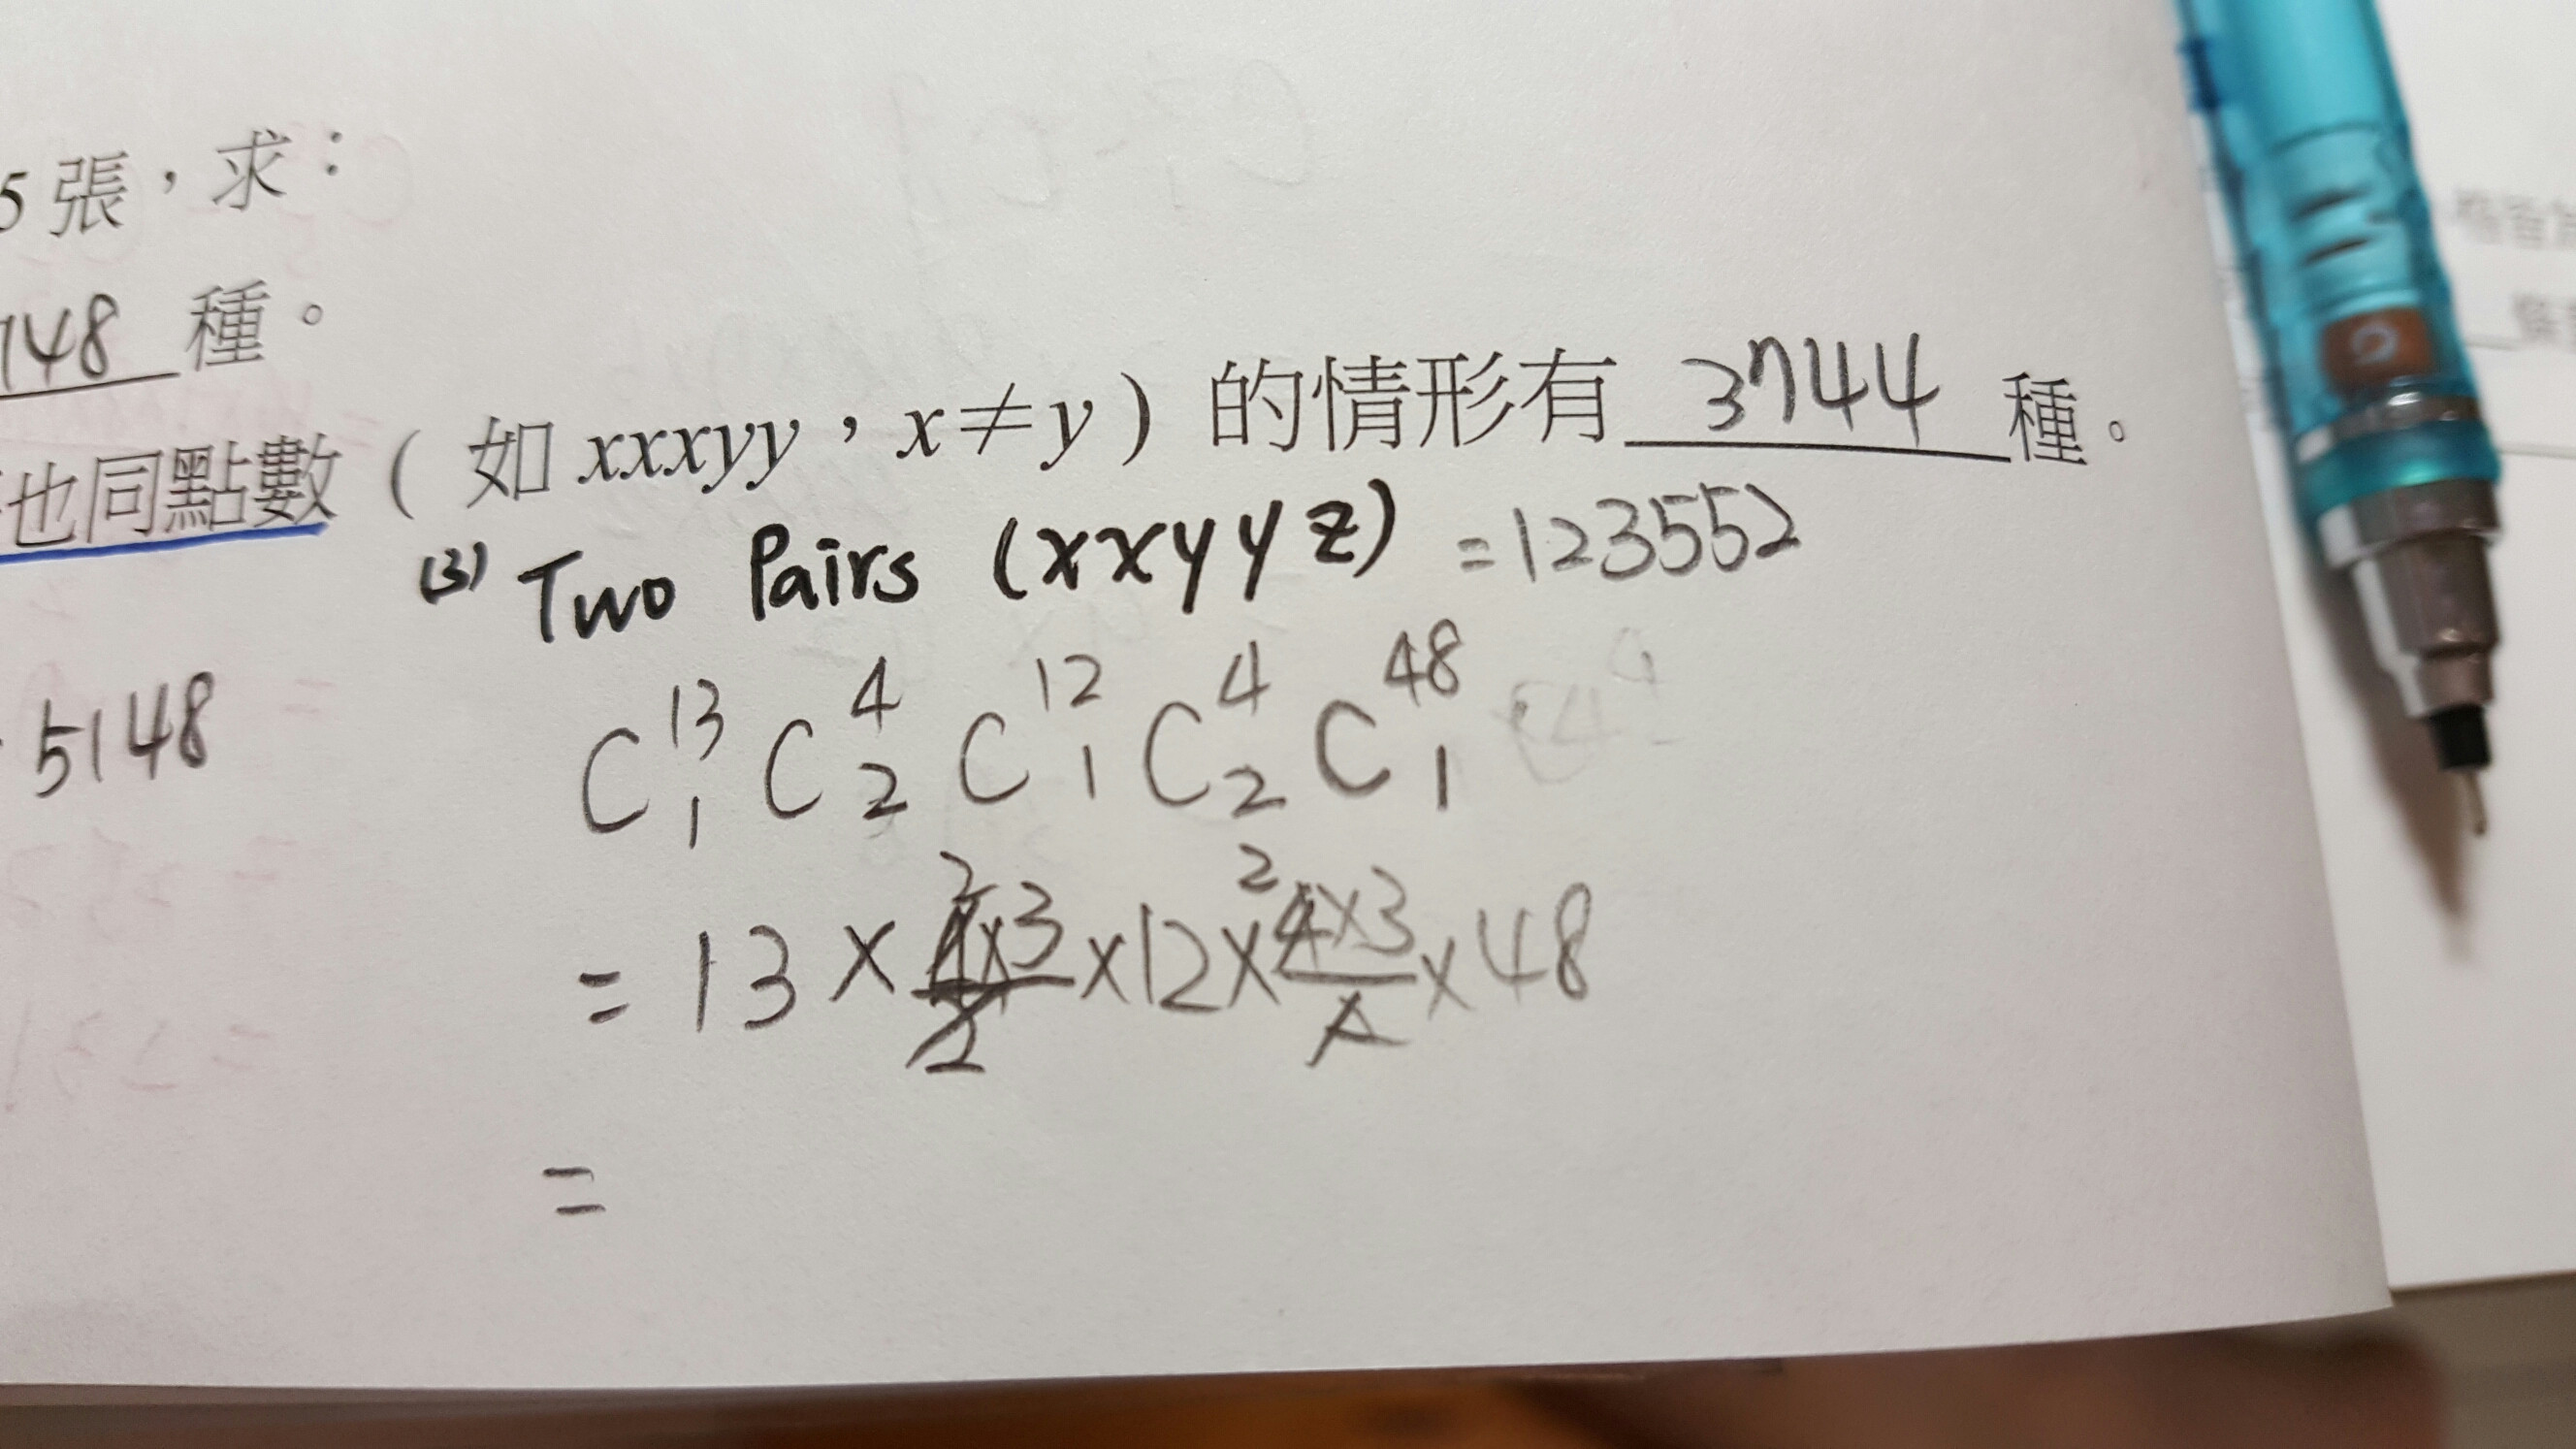 5張，求：
148 種。
也同點數（如 xxxyy，x≠y）的情形有 3744 種。
(3) Two Pairs (xxyyz) = 123552
5148
C¹³₁ C⁴₂ C¹²₁ C⁴₂ C⁴⁸₁
= 13 × 4×3/2 × 12 × 4×3/2 × 48
=